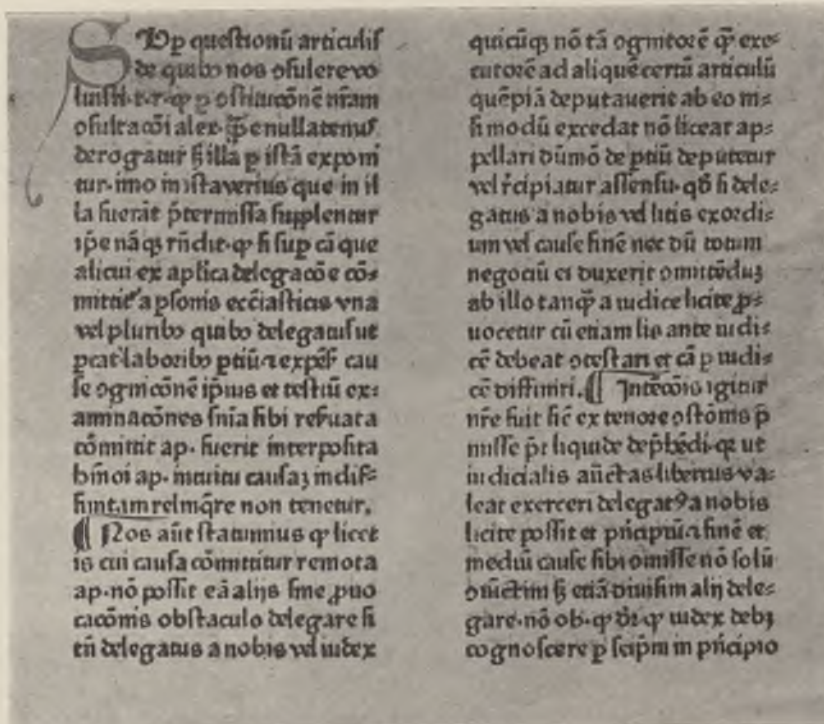 Sup questionū articulis
de quibꝰ nos ↄsulere vo
luisti· τ· r· ꝙ p ↄstitucōnē nr̄am
ↄsultacōi alex· p̄ᵉ nullatenus
derogatur sꝫ illa p istā exponi
tur· imo in ista verius que in il
la fuerāt p̄termissa supplentur
ip̄e nāqꝫ rn̄dit· ꝙ si sup cā que
alicui ex aplica delegacōe cō⸗
mittit᷑ a psonis ecc̄iasticis vna
vel pluribꝰ quibꝰ delegatus ut
pcat᷑ laboribꝰ ptiū τ expēs᷑ cau
se ↄgnicōnē ip̄ius et testiū ex⸗
aminacōnes sn̄ia sibi res̉uata
cōmittit ap· fuerit interposita
hm̄oi ap· intuitu causaꝫ indis⸗
sintam relinq̄re non tenetur.
¶ Nos aūt statuimus ꝙ licet
is cui causa cōmittitur remota
ap· nō possit eā alijs sine ꝓuo
cacōnis obstaculo delegare si
tn̄ delegatus a nobis vel iudex
quicūqꝫ nō tā ↄgnitorē q̄ᵉ exe⸗
cutorē ad aliquē certū articulū
quēpiā deputauerit ab eo ni⸗
si modū excedat nō liceat ap⸗
pellari dūmō de ptiū deputetur
vel r̉cipiatur assensu· qđ si dele⸗
gatus a nobis vel litis exordi⸗
um vel cause finē nec dū totum
negociū ei duxerit ↄmittēduꝫ
ab illo tanq̄ᵉ a iudice licite ꝓ⸗
uocetur cū etiam lis ante iudi⸗
cē debeat ↄtestari et cā p iudi⸗
cē diffiniri. ¶ Intēcōis igitur
nr̄e fuit sic̄ ex tenore ↄstōnis p̄
misse p̄t liquide dep̄hēdi· qꝫ ut
iudicialis auctas libertius va⸗
leat exerceri delegatꝰ a nobis
licite possit et pn̉cipiū τ finē et
mediū cause sibi ↄmisse nō solū
ↄiūctim sꝫ etiā diuisim alij dele⸗
gare· nō ob· ꝙ dr̄· ꝙ iudex debꝫ
cognoscere p seip̄m in pn̉cipio